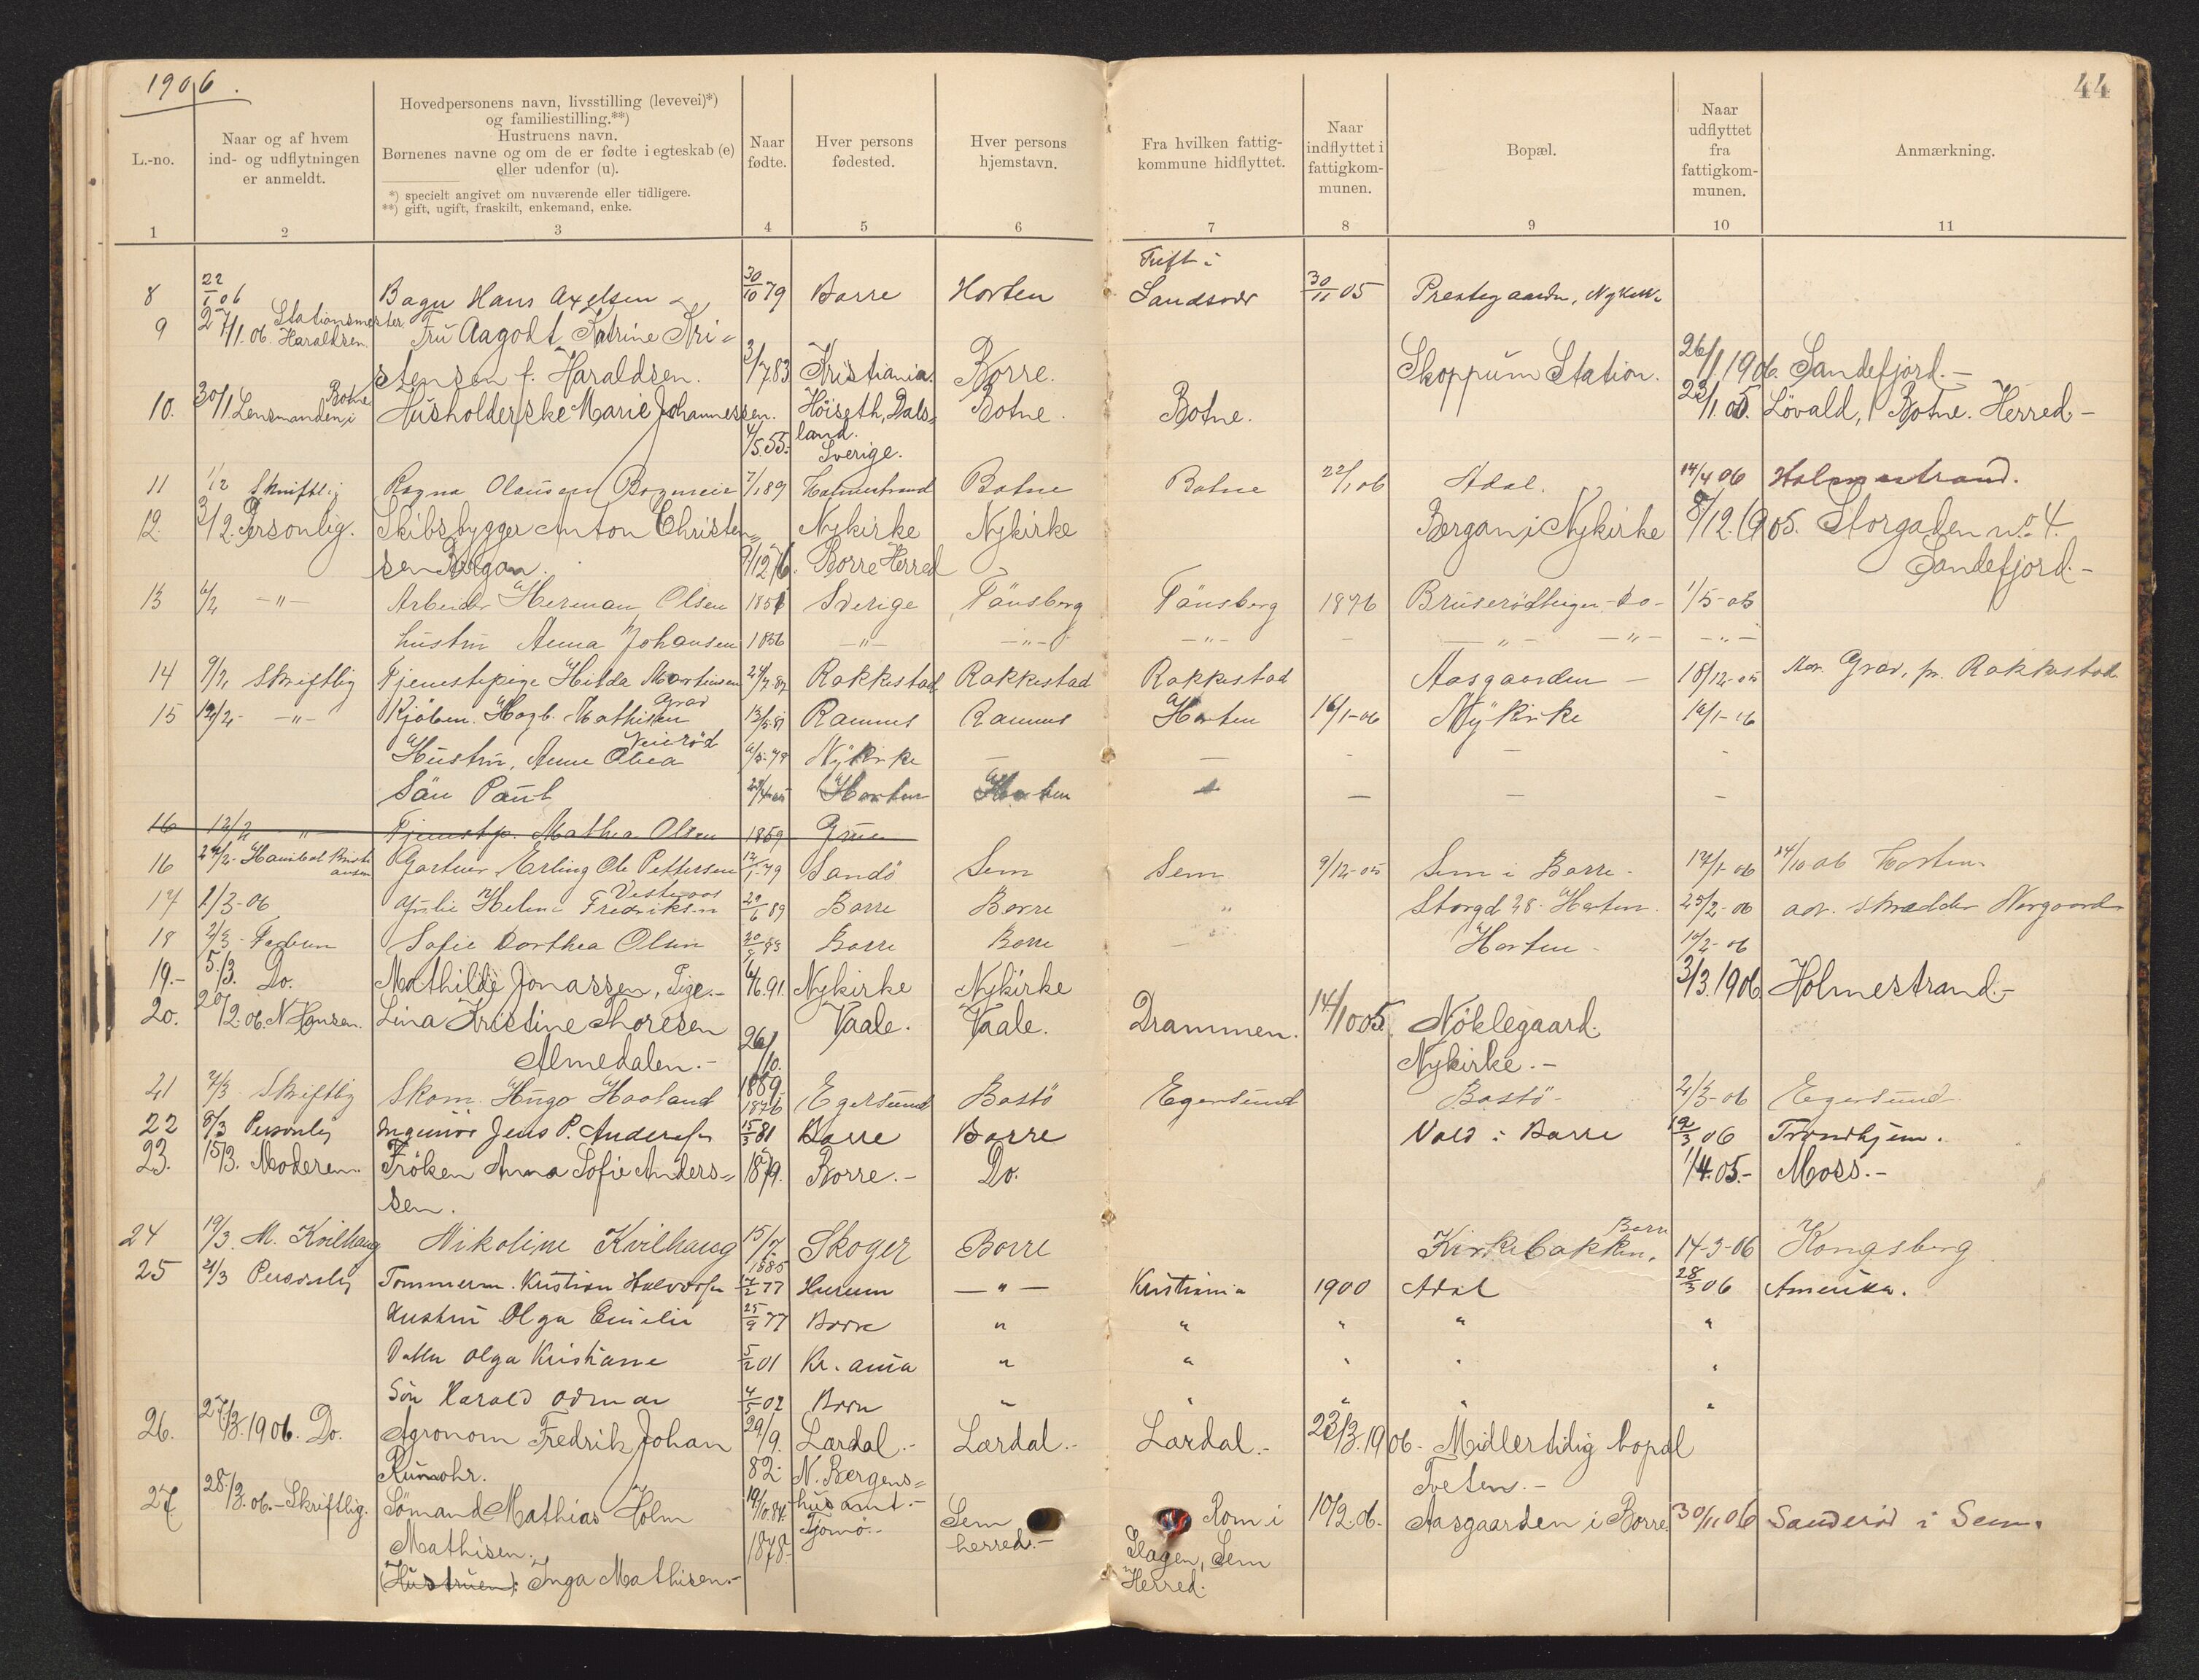 1906.
44
L.-no.
Naar og af hvem
ind- og udflytningen
er anmeldt.
Hovedpersonens navn, livsstilling (levevei)*)
og familiestilling.**)
Hustruens navn.
Børnenes navne og om de er fødte i egteskab (e)
eller udenfor (u).
*) specielt angivet om nuværende eller tidligere.
**) gift, ugift, fraskilt, enkemand, enke.
Naar
fødte.
Hver persons
fødested.
Hver persons
hjemstavn.
Fra hvilken fattig-
kommune hidflyttet.
Naar
indflyttet i
fattigkom-
munen.
Bopæl.
Naar
udflyttet
fra
fattigkom-
munen.
Anmærkning.
1 2 3 4 5 6 7 8 9 10 11
8 22/1 06 Hans Axelsen 30/10 79 Borre Horten 30/11 05
9 27/1.06. Stationsmester Haraldsen. Fru Aagodt Katrine Kri-
stensen f. Haraldsen. 3/7.83 Kristiania. Borre. Skoppum Station. 26/1 1906. Sandefjord.-
10. 30/1 Lensmanden i Botne Husholderske Marie Johannessen. Höiseth, Dals- Botne. Botne. 23/1.05. Løvald, Botne. Herred-
4/5.55. land.
Sverige.
11 1/2 Skriftlig Ragna Olausen 7/1 89 Holmestrand Botne Botne 22/1 06 Adal. 14/4 06 Holmestrand.
12. 3/2. Personlig. Skibsbygger Anton Christen- Nykirke Nykirke Bergan i Nykirke 8/12.1905. Storgaden no. 4.
sen Bergan. 9/12 76. Borre Herred Sandefjord.-
13 6/2 -"- Arbeider Herman Olsen 1851 Sverige Tønsberg Tønsberg 1876 1/5-05
hustru Anna Johansen 1856 -"- -"- -"- - -"- -"- -"-
14 9/2 Skriftlig Tjenestepige Hilda Martinsen Rakkestad Rakkestad Rakkestad Aasgaarden - 18/12-05 Grav, pr. Rakkestad
15 12/2- -"- Kjøbm. Hagb. Mathisen Grav Ramnes Ramnes Horten 16/1-06 Nykirke 16/1-06
Hustru, Anne Olea Veierød Nykirke - - - - -
Søn Paul Horten Horten - - -
16 12/2 " Tjenestp. Mathea Olsen 1859
16 Gartner Erling Ole Pettersen 12/1-79 Sandö Sem Sem 9/12-05 Sem i Borre- 17/1-06 14/10 06 Horten
17 1/3-06 Julie Helene Fredriksen 29/6 89 Borre Borre " Storgd 28 Horten. 25/2-06 adr. skrædder
18 2/3- Sofie Dorthea Olsen Borre Borre Horten -
19.- 5/3. Do. Mathilde Jonassen, Pige.- 4/6.91. Nykirke Nykirke 3/3.1906 Holmestrand.-
20. 20/2.06. N Hansen. Lina Kristine Thoresen 26/10. Vaale. Vaale. Drammen. 14/10 05. Nöklegaard.
Almedalen.- 1889. Nykirke.-
21 Skriftlig Skom. Hugo Haaland 1876 Egersund Bastö Egersund Bastö- 2/3-06 Egersund
22 8/3 Personlig Ingeniör Jens P. Andersen 15/3 81 Borre Borre Vold i Borre 12/3 06 Trondhjem.
23. 15/3. Moderen. Fröken Anna Sofie Anders- 1879. Borre.- Do. 1/4.05.- Moss.-
sen.
24 19/3. M. Kvilhaug Nikoline Kvilhaug 15/7 1885 Skoger Borre Kirkebakken. Borre 14-3-06 Kongsberg
25 Personlig Tømmerm. Kristian Halvorsen 77 Hurum -"- Kristiania 1900 Adal 28/3 06 Amerika.
Hustru Olga Emilie 25/9 77 Borre " " " " "
Datter Olga Kristiane 5/2 01 Kr. ania " " " " "
Søn Harald Odmar 4/5 02 Borre " " " " "
26. 27/3.1906. Do. Agronom Fredrik Johan 29/9. Lærdal.- Lærdal.- Lærdal.- 23/3.1906- Midlertidig bopæl
Rumohr. 82. N. Bergens- Tveten.-
27 28/3.06.- Skriftlig. Sömand Mathias Holm 19/10.84. hus amt.- Sem Rom i 10/2.06. Aasgaarden i Borre. 30/11 06 Sanderød i Sem.
Mathisen. 1878- Tjømö.- herred.- Slagen, Sem
(Hustruen): Inga Mathisen.- Herred.